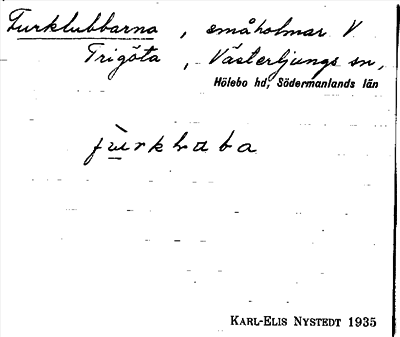 Furklubbarna, småholmar V
Trigöta, Västerljungs sn,
Hölebo hd, Södermanlands län
KARL-ELIS NYSTEDT 1935